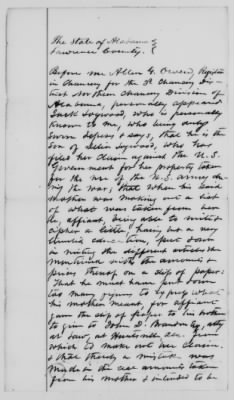 The State of Alabama }
Lawrence County. }
Before me Allen G. Owen, Register
in Chancery for the 3d Chancery Dis-
trict Northern Chancery Division of
Alabama, personally appeared
Jack Sogwood, who is personally
known to me, who being duly
sworn deposes & says, that he is the
son of Sogwood, who has
filed her claim against the U.S.
Government for her property taken
for the use of the U.S. army du-
ring the war; that when his said
mother was making out a list
of what was taken from her
he, affiant, being able to write &
cipher a little, having but a very
limited education, put down
in writing the different articles
mentioned with the amounts &
prices thereof on a slip of paper;
that he must have put down
too many for what
his mother meant for affiant
gave the slip of paper to his mother
to give to John D. Brandon, atty
at Law, at Huntsville Ala. from
which to make out her claim.
& that thereby a mistake was
made in the amounts taken
from his mother & intended to be